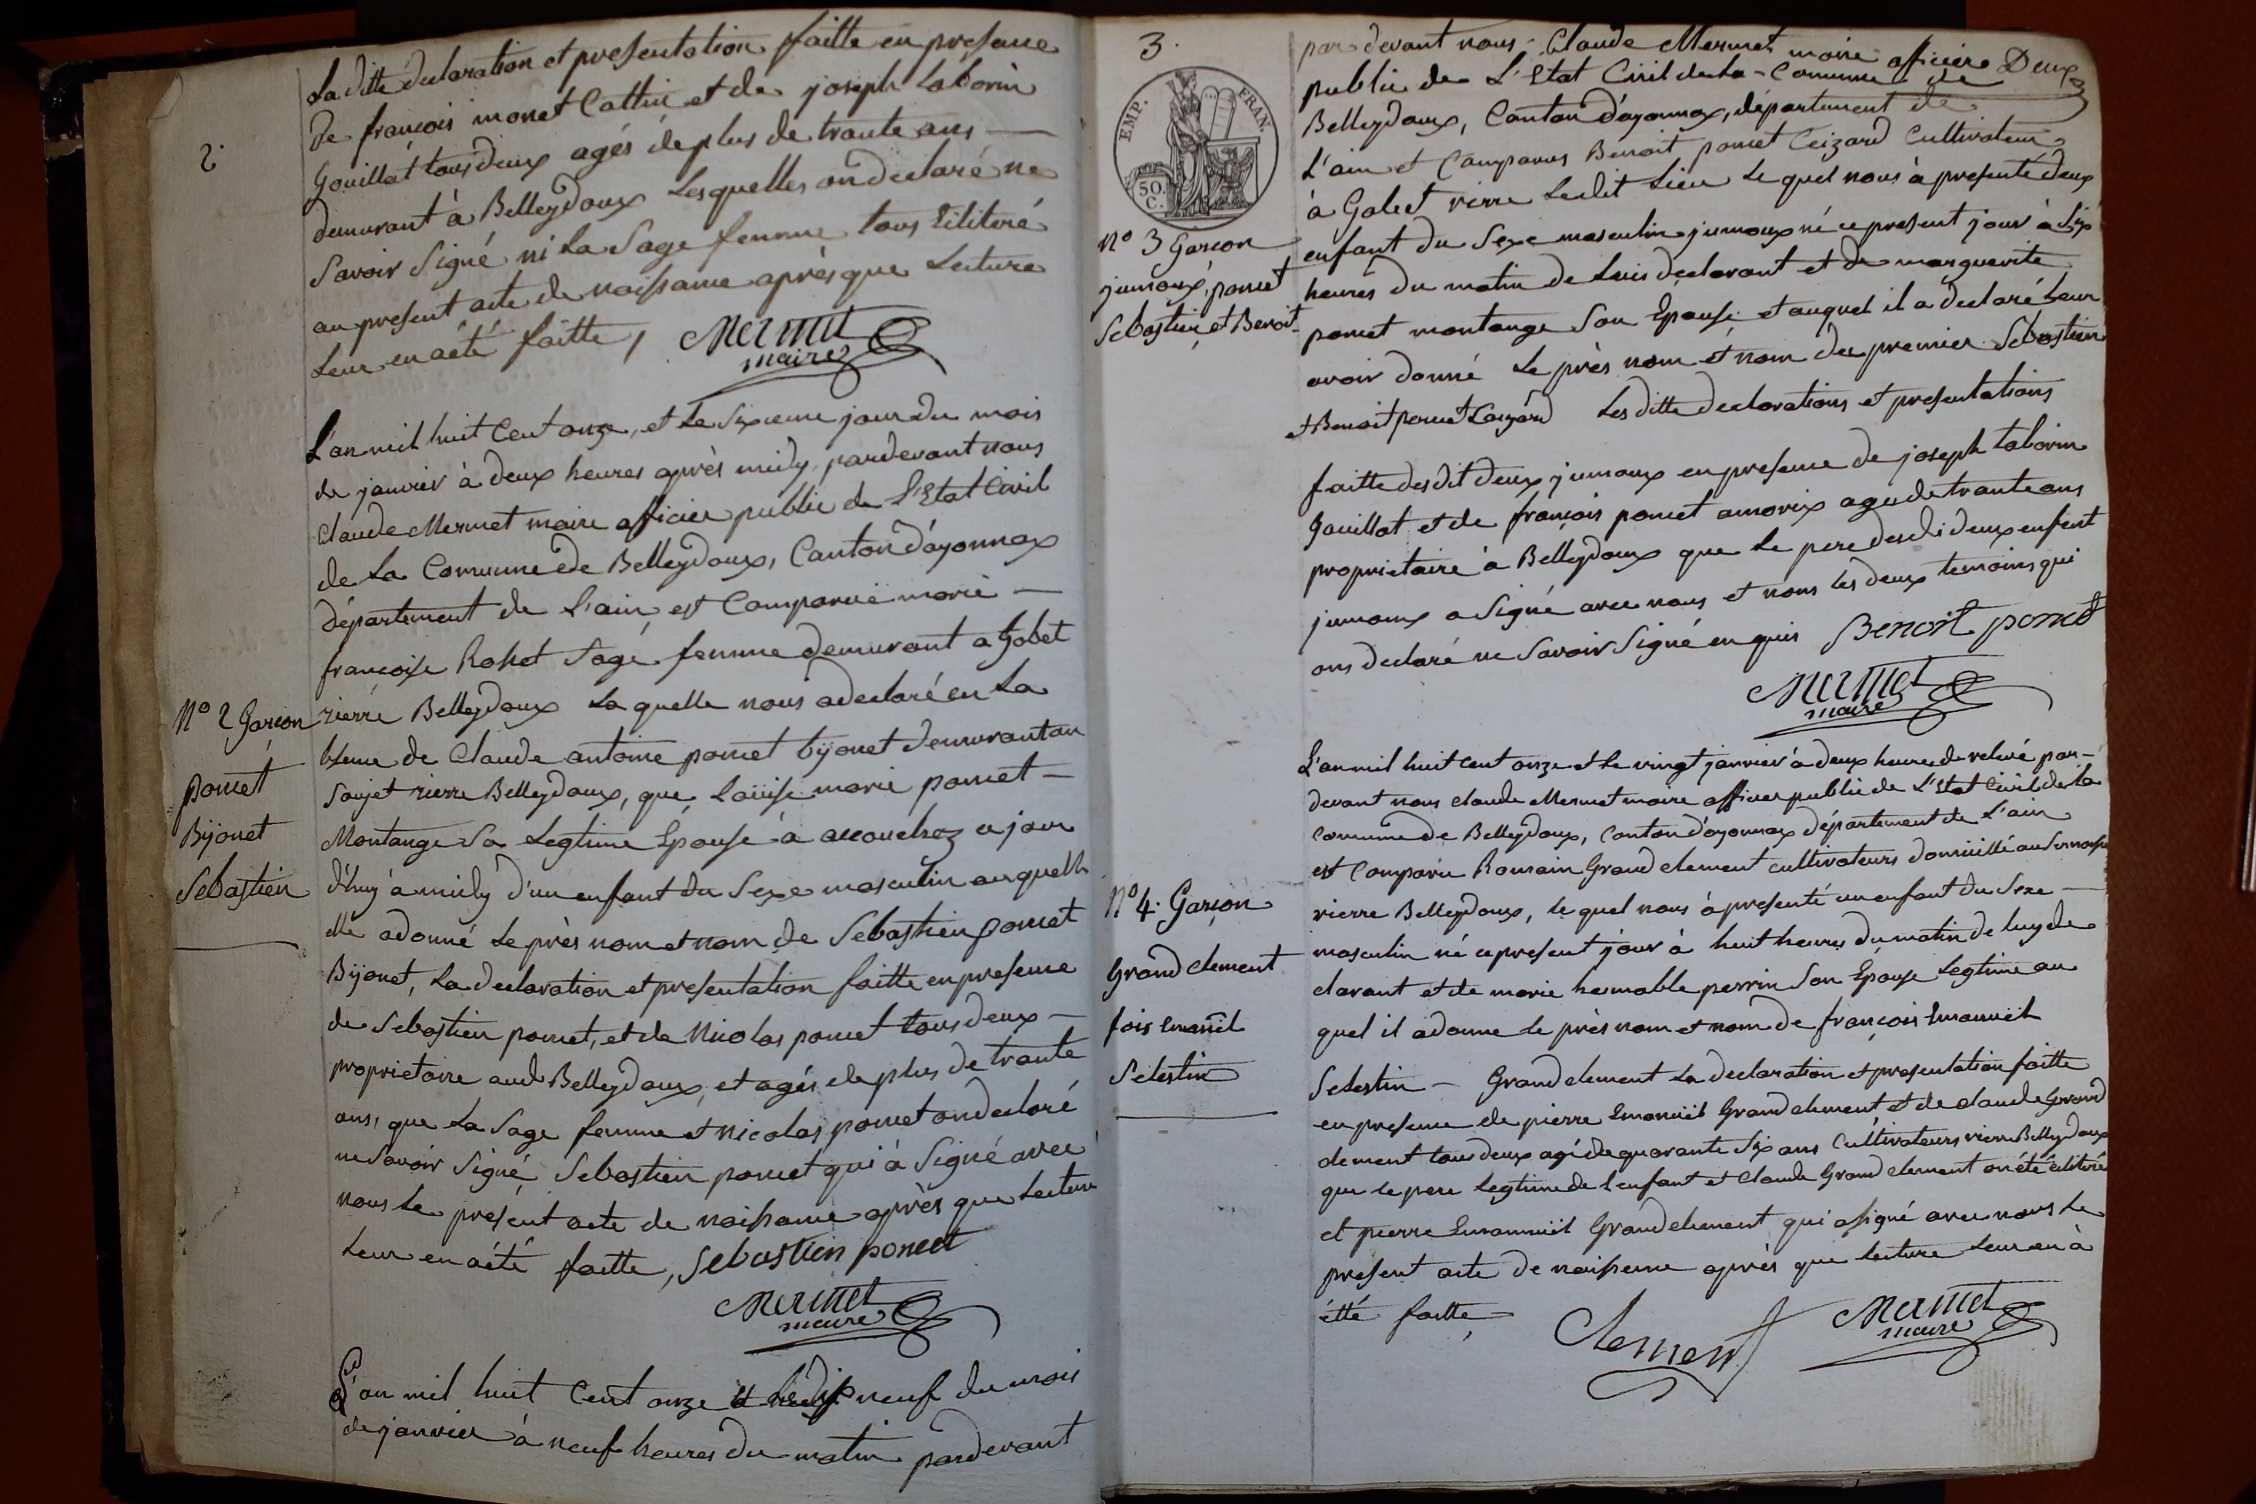 2.
La ditte declaration et presentation faitte en presance
de françois monet Cattin et de joseph taborin
Gouillat tous deux agés de plus de trante ans —
demurant à Belleydoux Lesquelles on declaré ne
Savoir Signé ni la Sage femme tous
au present acte de naissance après que Lecture
Leur en a été faitte,
Mermet
maire
L'an mil huit Cent onze, et le Sixieme jour du mois
de janvier à deux heures après midy, pardevant nous
Claude Mermet maire officier public de L'Etat Civil
de la Comunne de Belleydoux, Canton d'ayonnax
département de L'ain, est Comparue marie —
françoise Rohet Sage femme demurant a Gobet
rierre Belleydoux La quelle nous a declaré en La
N.o 2 Garcon
poncet
Bijouet
Sebastien
de Claude antoine poncet bijouet demurant au
Sorjet rierre Belleydoux, que Loüise marie poncet —
Montange Sa Legtime Epouse à accouchez ce jour
d'huy a midy d'un enfant du Sexe masculin auquelle
elle a donné Le près nom et nom de Sebastien poncet
Bijouet, La declaration et presentation faitte en presence
de Sebastien poncet, et de Nicolas poncet tous deux —
proprietaire aud Belleydoux, et agés de plus de trante
ans, que La Sage femme et nicolas poncet on declaré
ne Savoir Signé Sebastien poncet qui à Signé avec
nous Le présent acte de naissance après que Lecture
Leur en a été faitte, Sebastien poncet
Mermet
maire
L'an mil huit Cent onze et le dix neuf du mois
de janvier à neuf heures du matin pardevant
3.
Deux
EMP. FRAN.
50. C.
par devant nous Claude Mermet maire officiere
public de L'Etat Civil de La Comunne de
Belleydoux, Canton d'ayonnax, département de
L'ain et Comparus Benoit poncet Ceizard Cultivateur
à Gobet rierre Ledit Lieu Le quel nous à presenté deux
enfant du Sexe masculin jumoux né ce present jour à Six
heures du matin de Luis declarant et de marguerite
poncet montange Son Epouse et auquel il a declaré Leur
avoir donné Le près nom et nom du premier Sebastien
et Benoit poncet Les ditte declarations et presentations
N.o 3 Garcon
jumoux, poncet
Sebastien et Benoit
faitte desdit deux jumoux en presence de joseph taborin
Gouillat et de françois poncet amorix agé de trante ans
proprietaire à Belleydoux que Le pere desdi deux enfent
jumoux a Signé avec nous et nous Les deux temoins qui
ons declaré ne Savoir Signé en quis Benoit poncet
Mermet
maire
L'an mil huit Cent onze et Le vingt janvier à deux heures de relevé par-
devant nous Claude Mermet maire officier public de L'Etat Civil de La
Comunne de Belleydoux, Canton d'oyonnax département de L'ain
est Comparu Romain Grandclement cultivateurs domicillié au
rierre Belleydoux, le quel nous à presenté un enfant du Sexe —
masculin né ce present jour à huit heures du matin de luy de
clarant et de marie perrin Son Epouse Legtime au
quel il a donne Le près nom et nom de françois Emanuël
Selestin — Grandclement La declaration et presentation faitte
N.o 4. Garcon
Grand clement
fois Emanuël
Selestin
en presence de pierre Emanuël Grandclement et de claude Grand
clement tous deux agé de quarante Six ans Cultivateurs rierre Belleydoux
que Le pere Legtime de L'enfant et Claude Grandclement on été
et pierre Emanuël Grandclement qui a signé avec nous Le
présent acte de naissance après que Lecture Leur en à
étté faitte,
Clement
Mermet
maire